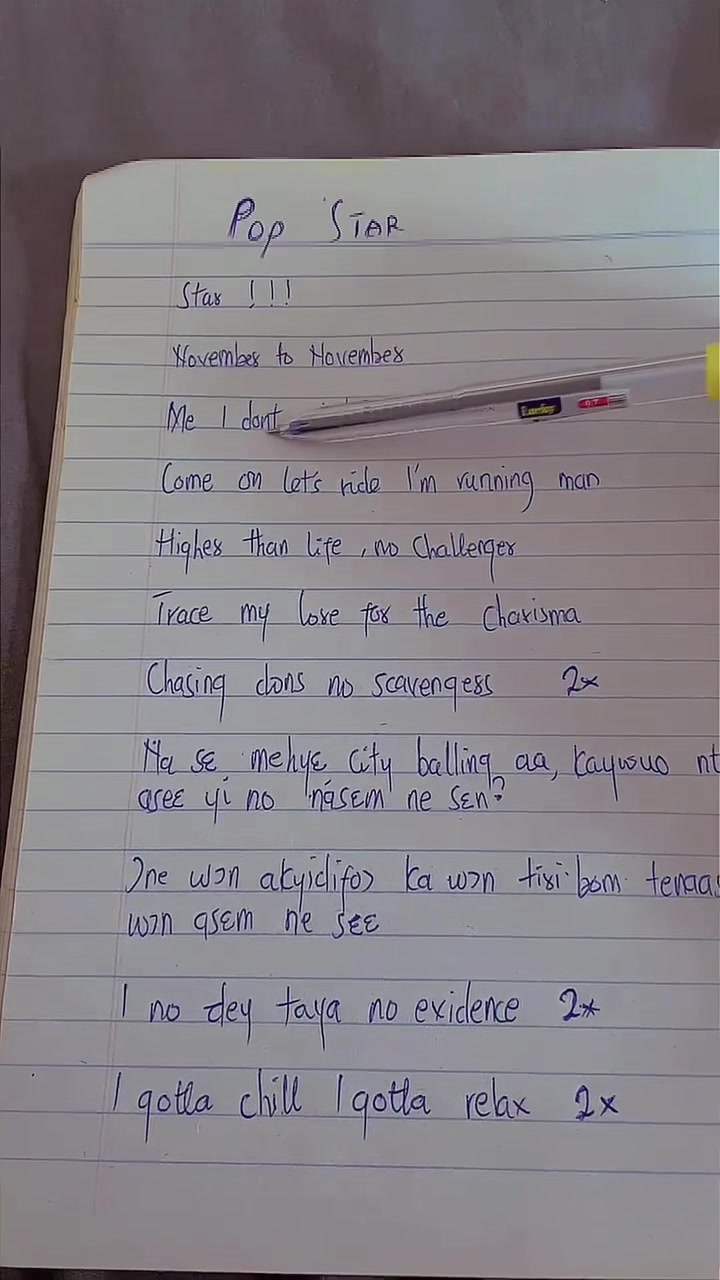 Pop STAR
Star !!!
November to November
Me I dont
Come on let's ride I'm running man
Higher than life, no challenger
Trace my love for the charisma
Chasing dons no scavengers 2x
Na sɛ mehyɛ city balling aa, kaywuo
asɛɛ yi no 'násɛm' ne sɛn?
Ɔne wɔn akyidifoɔ ka wɔn tiri bom
wɔn asɛm ne sɛɛ
I no dey taya no evidence 2x
I gotta chill I gotta relax 2x